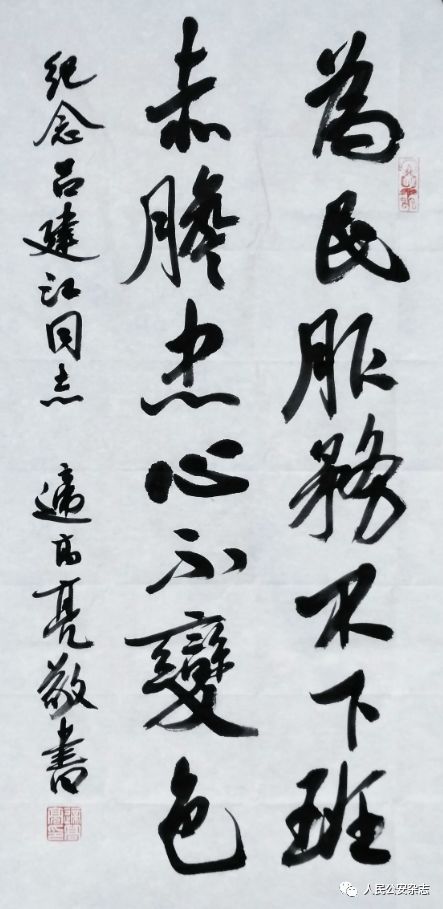 為民服務不下班
赤膽忠心不變色
纪念吕建江同志 適高亮敬書
人民公安杂志